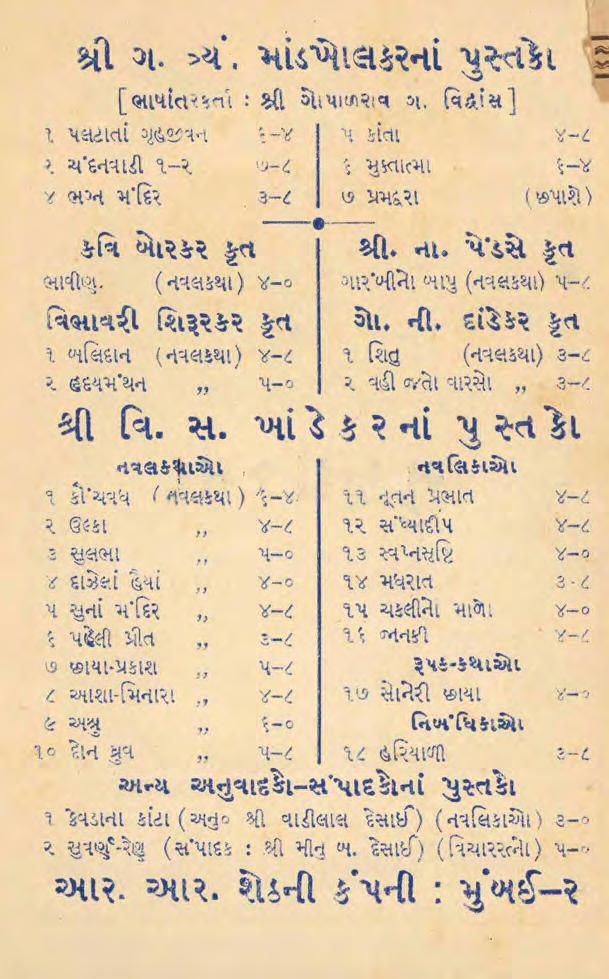 શ્રી ગ. ત્ર્યં. માંડખોલકરનાં પુસ્તકો
[ભાષાંતરકર્તા : શ્રી ગોપાળરાવ ગ. વિદ્વાંસ]
૧ પલટાતાં ગૃહજીવન ૬–૪
૨ ચંદનવાડી ૧–૨ ૭–૮
૪ ભગ્ન મંદિર ૩–૮
૫ કાંતા ૪–૮
૬ મુક્તાત્મા ૬–૪
૭ પ્રમદ્વરા (છપાશે)
કવિ બોરકર કૃત
ભાવીણ. (નવલકથા) ૪–૦
વિભાવરી શિરૂરકર કૃત
૧ બલિદાન (નવલકથા) ૪–૮
૨ હૃદયમંથન ,, ૫–૦
શ્રી. ના. પેંડસે કૃત
ગારંબીનો બાપુ (નવલકથા) ૫–૮
ગો. ની. દાંડેકર કૃત
૧ શિતુ (નવલકથા) ૩–૮
૨ વહી જતો વારસો ,, ૩–૮
શ્રી વિ. સ. ખાંડેકરનાં પુસ્તકો
નવલકથાઓ
૧ ક્રૌંચવધ (નવલકથા) ૬–૪
૨ ઉલ્કા ,, ૪–૮
૩ સુલભા ,, ૫–૦
૪ દાઝેલાં હૈયાં ,, ૪–૦
૫ સુનાં મંદિર ,, ૪–૮
૬ પહેલી પ્રીત ,, ૩–૮
૭ છાયા-પ્રકાશ ,, ૫–૮
૮ આશા-મિનારા ,, ૪–૮
૯ અશ્રુ ,, ૬–૦
૧૦ દોન ધ્રુવ ,, ૫–૮
નવલિકાઓ
૧૧ નૂતન પ્રભાત ૪–૮
૧૨ સંધ્યાદીપ ૪–૮
૧૩ સ્વપ્નસૃષ્ટિ ૪–૦
૧૪ મધરાત ૩-૮
૧૫ ચકલીનો માળો ૪–૦
૧૬ જાનકી ૪–૮
રૂપક-કથાઓ
૧૭ સોનેરી છાયા ૪–૦
નિબંધિકાઓ
૧૮ હરિયાળી ૨–૮
અન્ય અનુવાદકો–સંપાદકોનાં પુસ્તકો
૧ કેવડાના કાંટા (અનુ૦ શ્રી વાડીલાલ દેસાઈ) (નવલિકાઓ) ૩–૦
૨ સુવર્ણ-રેણુ (સંપાદક : શ્રી મીનુ બ. દેસાઈ) (વિચારરત્નો) ૫–૦
આર. આર. શેઠની કંપની : મુંબઈ–૨